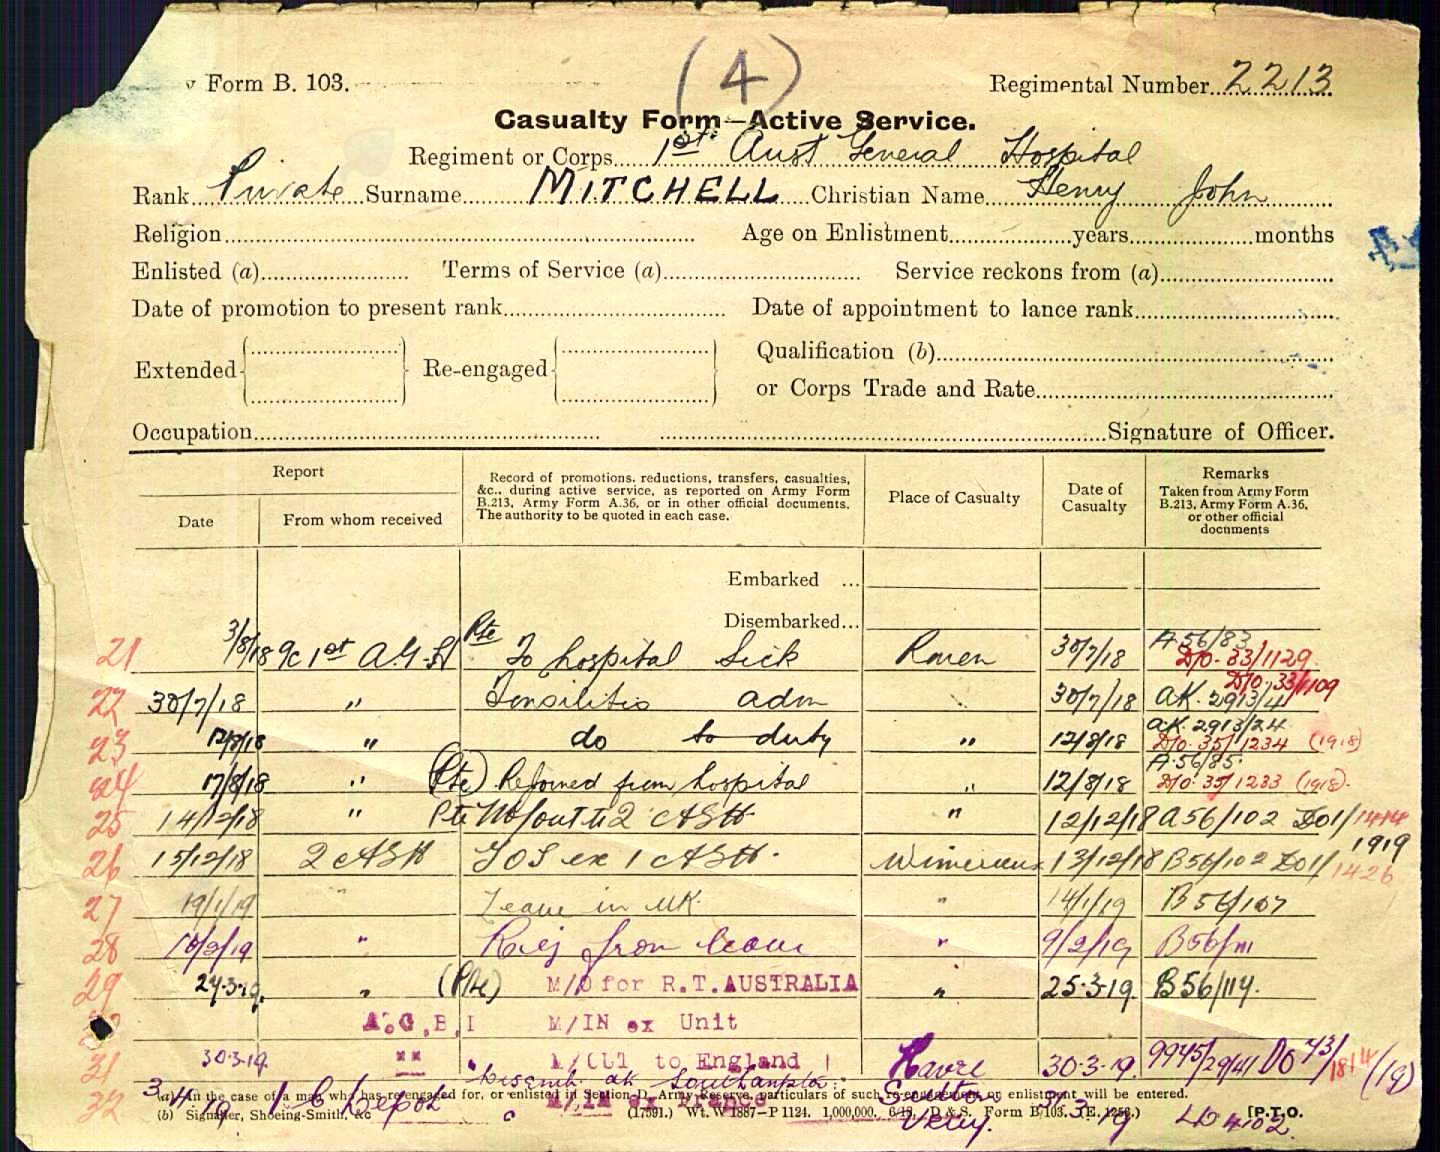 Form B. 103.
(4)
Regimental Number 2213
Casualty Form—Active Service.
Regiment or Corps 1st Aust General Hospital
Rank Private Surname MITCHELL Christian Name Henry John
Religion Age on Enlistment years months
Enlisted (a) Terms of Service (a) Service reckons from (a)
Date of promotion to present rank Date of appointment to lance rank
Extended Re-engaged Qualification (b)
or Corps Trade and Rate
Occupation Signature of Officer.
Report
Date
From whom received
Record of promotions, reductions, transfers, casualties,
&c., during active service, as reported on Army Form
B.213, Army Form A.36, or in other official documents.
The authority to be quoted in each case.
Place of Casualty
Date of
Casualty
Remarks
Taken from Army Form
B.213, Army Form A.36,
or other official
documents
Embarked ...
Disembarked...
21 3/8/18 1st A.G.H Pte To hospital Sick Rouen 30/7/18 A56/83 D/O. 33/1129
22 30/7/18 " adm 30/7/18 AK. 2913/4 D/O. 33/1109
23 12/8/18 " do to duty " 12/8/18 AK. 2913/24 D/O. 35/1234 (1918)
24 17/8/18 " (Pte) Rejoined from hospital " 12/8/18 A.56/85. D/O. 35/1233 (1918).
25 14/12/18 " Pte M/out to 2 AGH " 12/12/18 A56/102 DO1/1414
1919
26 15/12/18 2 AGH TOS ex 1 AGH. Wimereux 13/12/18 B56/102 DO1/1426
27 19/1/19 " Leave in UK. " 14/1/19 B56/107
28 10/2/19 " Rej from leave " 9/2/19 B56/111
29 24.3.19. " (Pte) M/O for R.T.AUSTRALIA " 25.3.19. B56/114.
A.G.B.I M/IN ex Unit
31 30.3.19. "" M/OUT to England Havre 30.3.19. 9945/29/41 DO 43/1814 (19)
32 3.4.19 Depot Disemb. at Southampton
M/IN ex France Sutton
Veny. 31.3.19 LD 4102.
(a) In the case of a man who has re-engaged for, or enlisted in Section D, Army Reserve, particulars of such re-engagement or enlistment will be entered.
(b) Signaller, Shoeing-Smith, &c (17591.) Wt. W 1887—P 1124. 1,000,000. 6/18. D & S. Form B/103. [P.T.O.